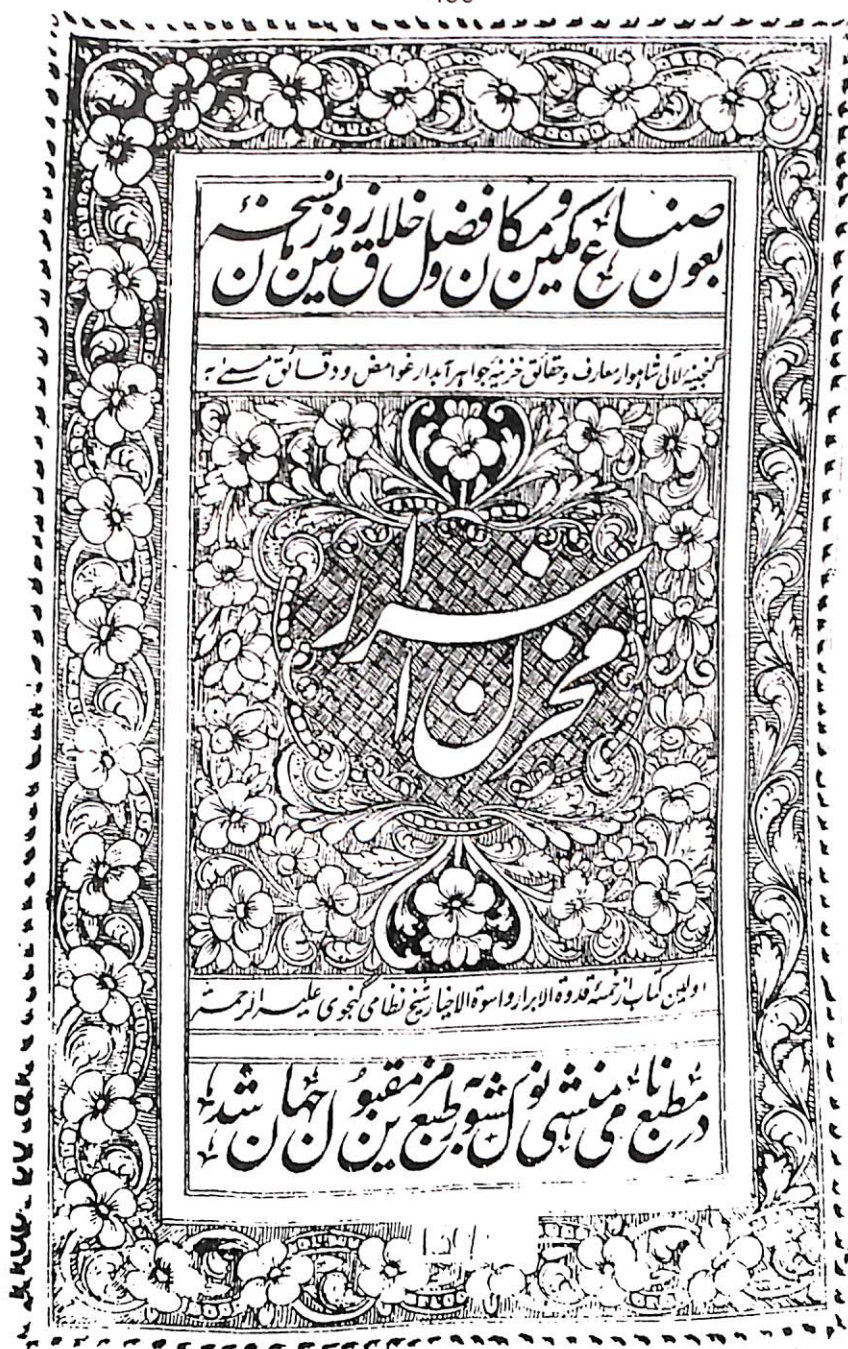 بعون صناع مکین و مکان و فضل خلاق زمین و زمان نسخهٔ
گنجینهٔ لآلی شاهوار معارف و حقائق خزینهٔ جواهر آبدار غوامض و دقائق مسمےٰ به
مخزن اسرار
اولین کتاب از خمسهٔ قدوة الابرار و اسوة الاخیار شیخ نظامی گنجوی علیه الرحمة
در مطبع نامی منشی نول کشور بطبع مزین مقبول جهان شد